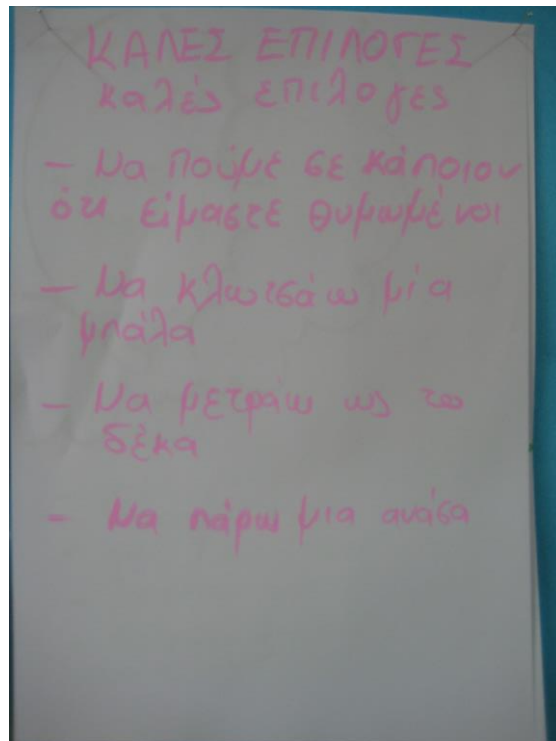 ΚΑΛΕΣ ΕΠΙΛΟΓΕΣ
καλές επιλογες
- Να πούμε σε κάποιον
ότι είμαστε θυμωμένοι
- Να κλωτσάω μία
μπάλα
- Να μετράω ως το
δέκα
- Να πάρω μια ανάσα